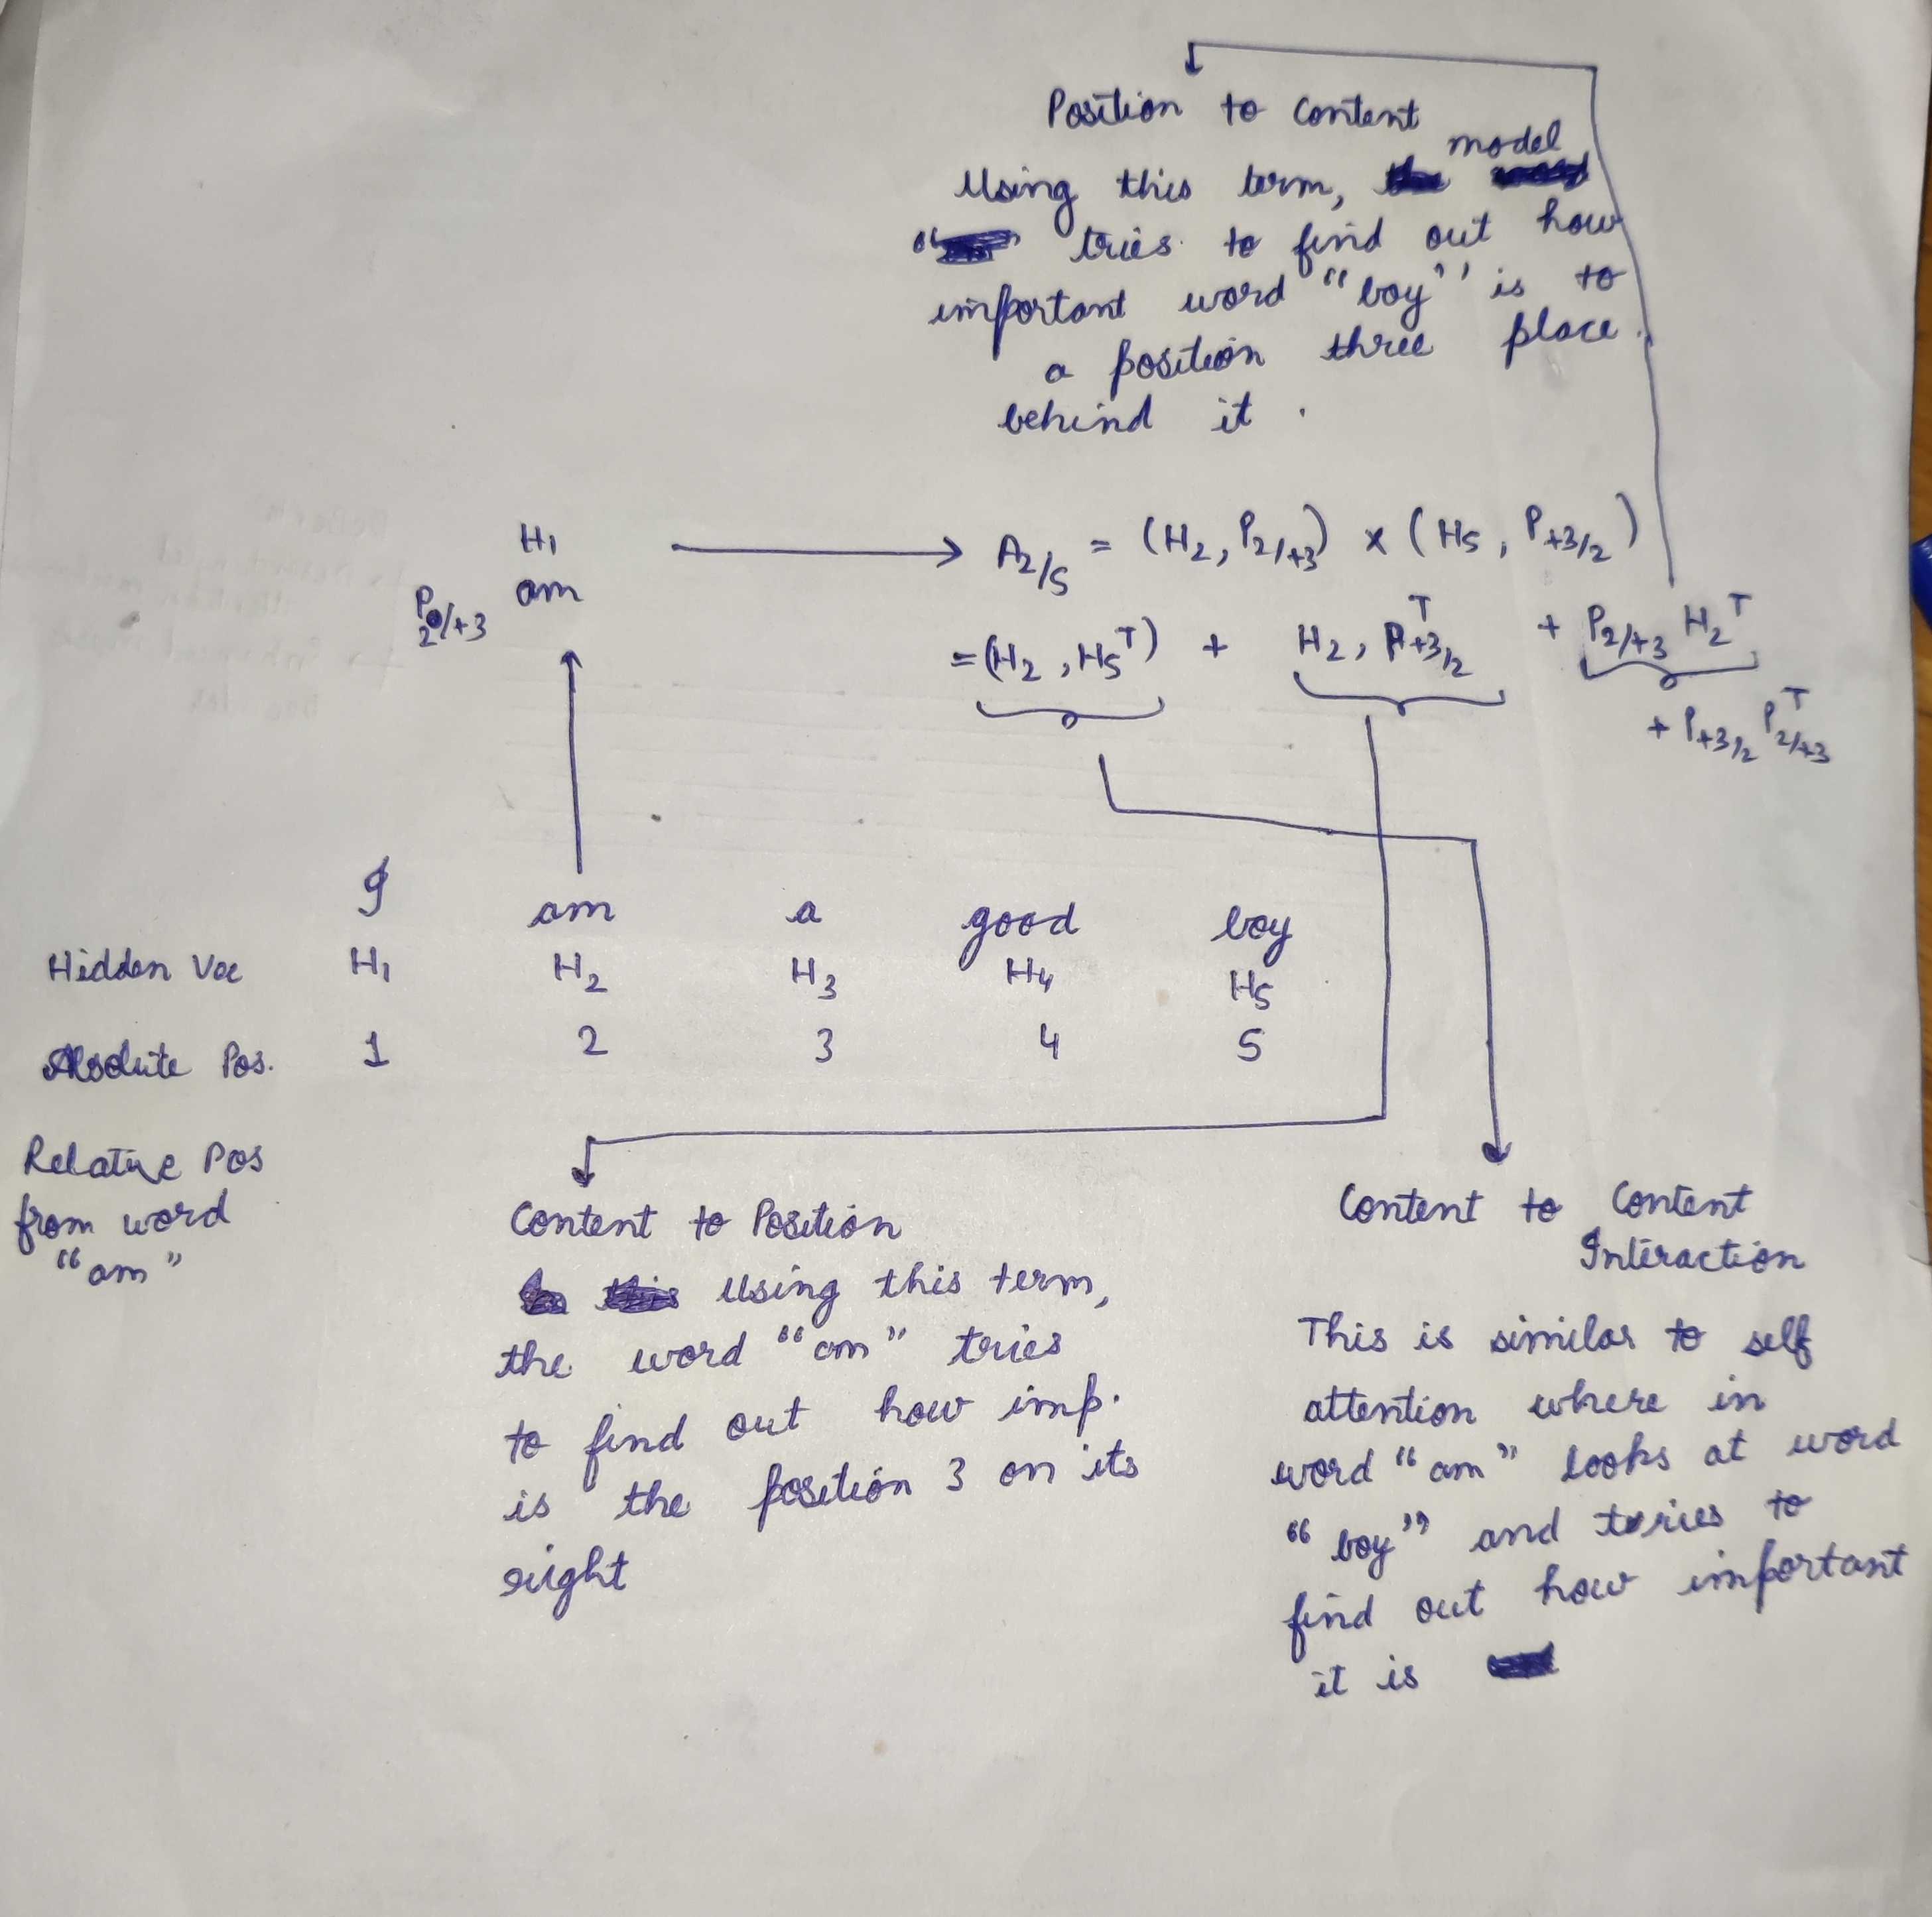 Position to Content
model
Using this term,
tries to find out how
important word "boy" is to
a position three place
behind it.
H₁
am
P₂/+3
A₂/5 = (H₂, P₂/+3) x (H5, P+3/2)
= (H₂, H5ᵀ) + H₂, Pᵀ+3/2 + P₂/+3 H₂ᵀ
+ P+3/2 Pᵀ₂/+3
I am a good boy
Hidden Vec H₁ H₂ H₃ H₄ H5
Absolute Pos. 1 2 3 4 5
Relative Pos
from word
"am"
Content to Position
Using this term,
the word "am" tries
to find out how imp.
is the position 3 on its
right
Content to Content
Interaction
This is similar to self
attention where in
word "am" looks at word
"boy" and tries to
find out how important
it is